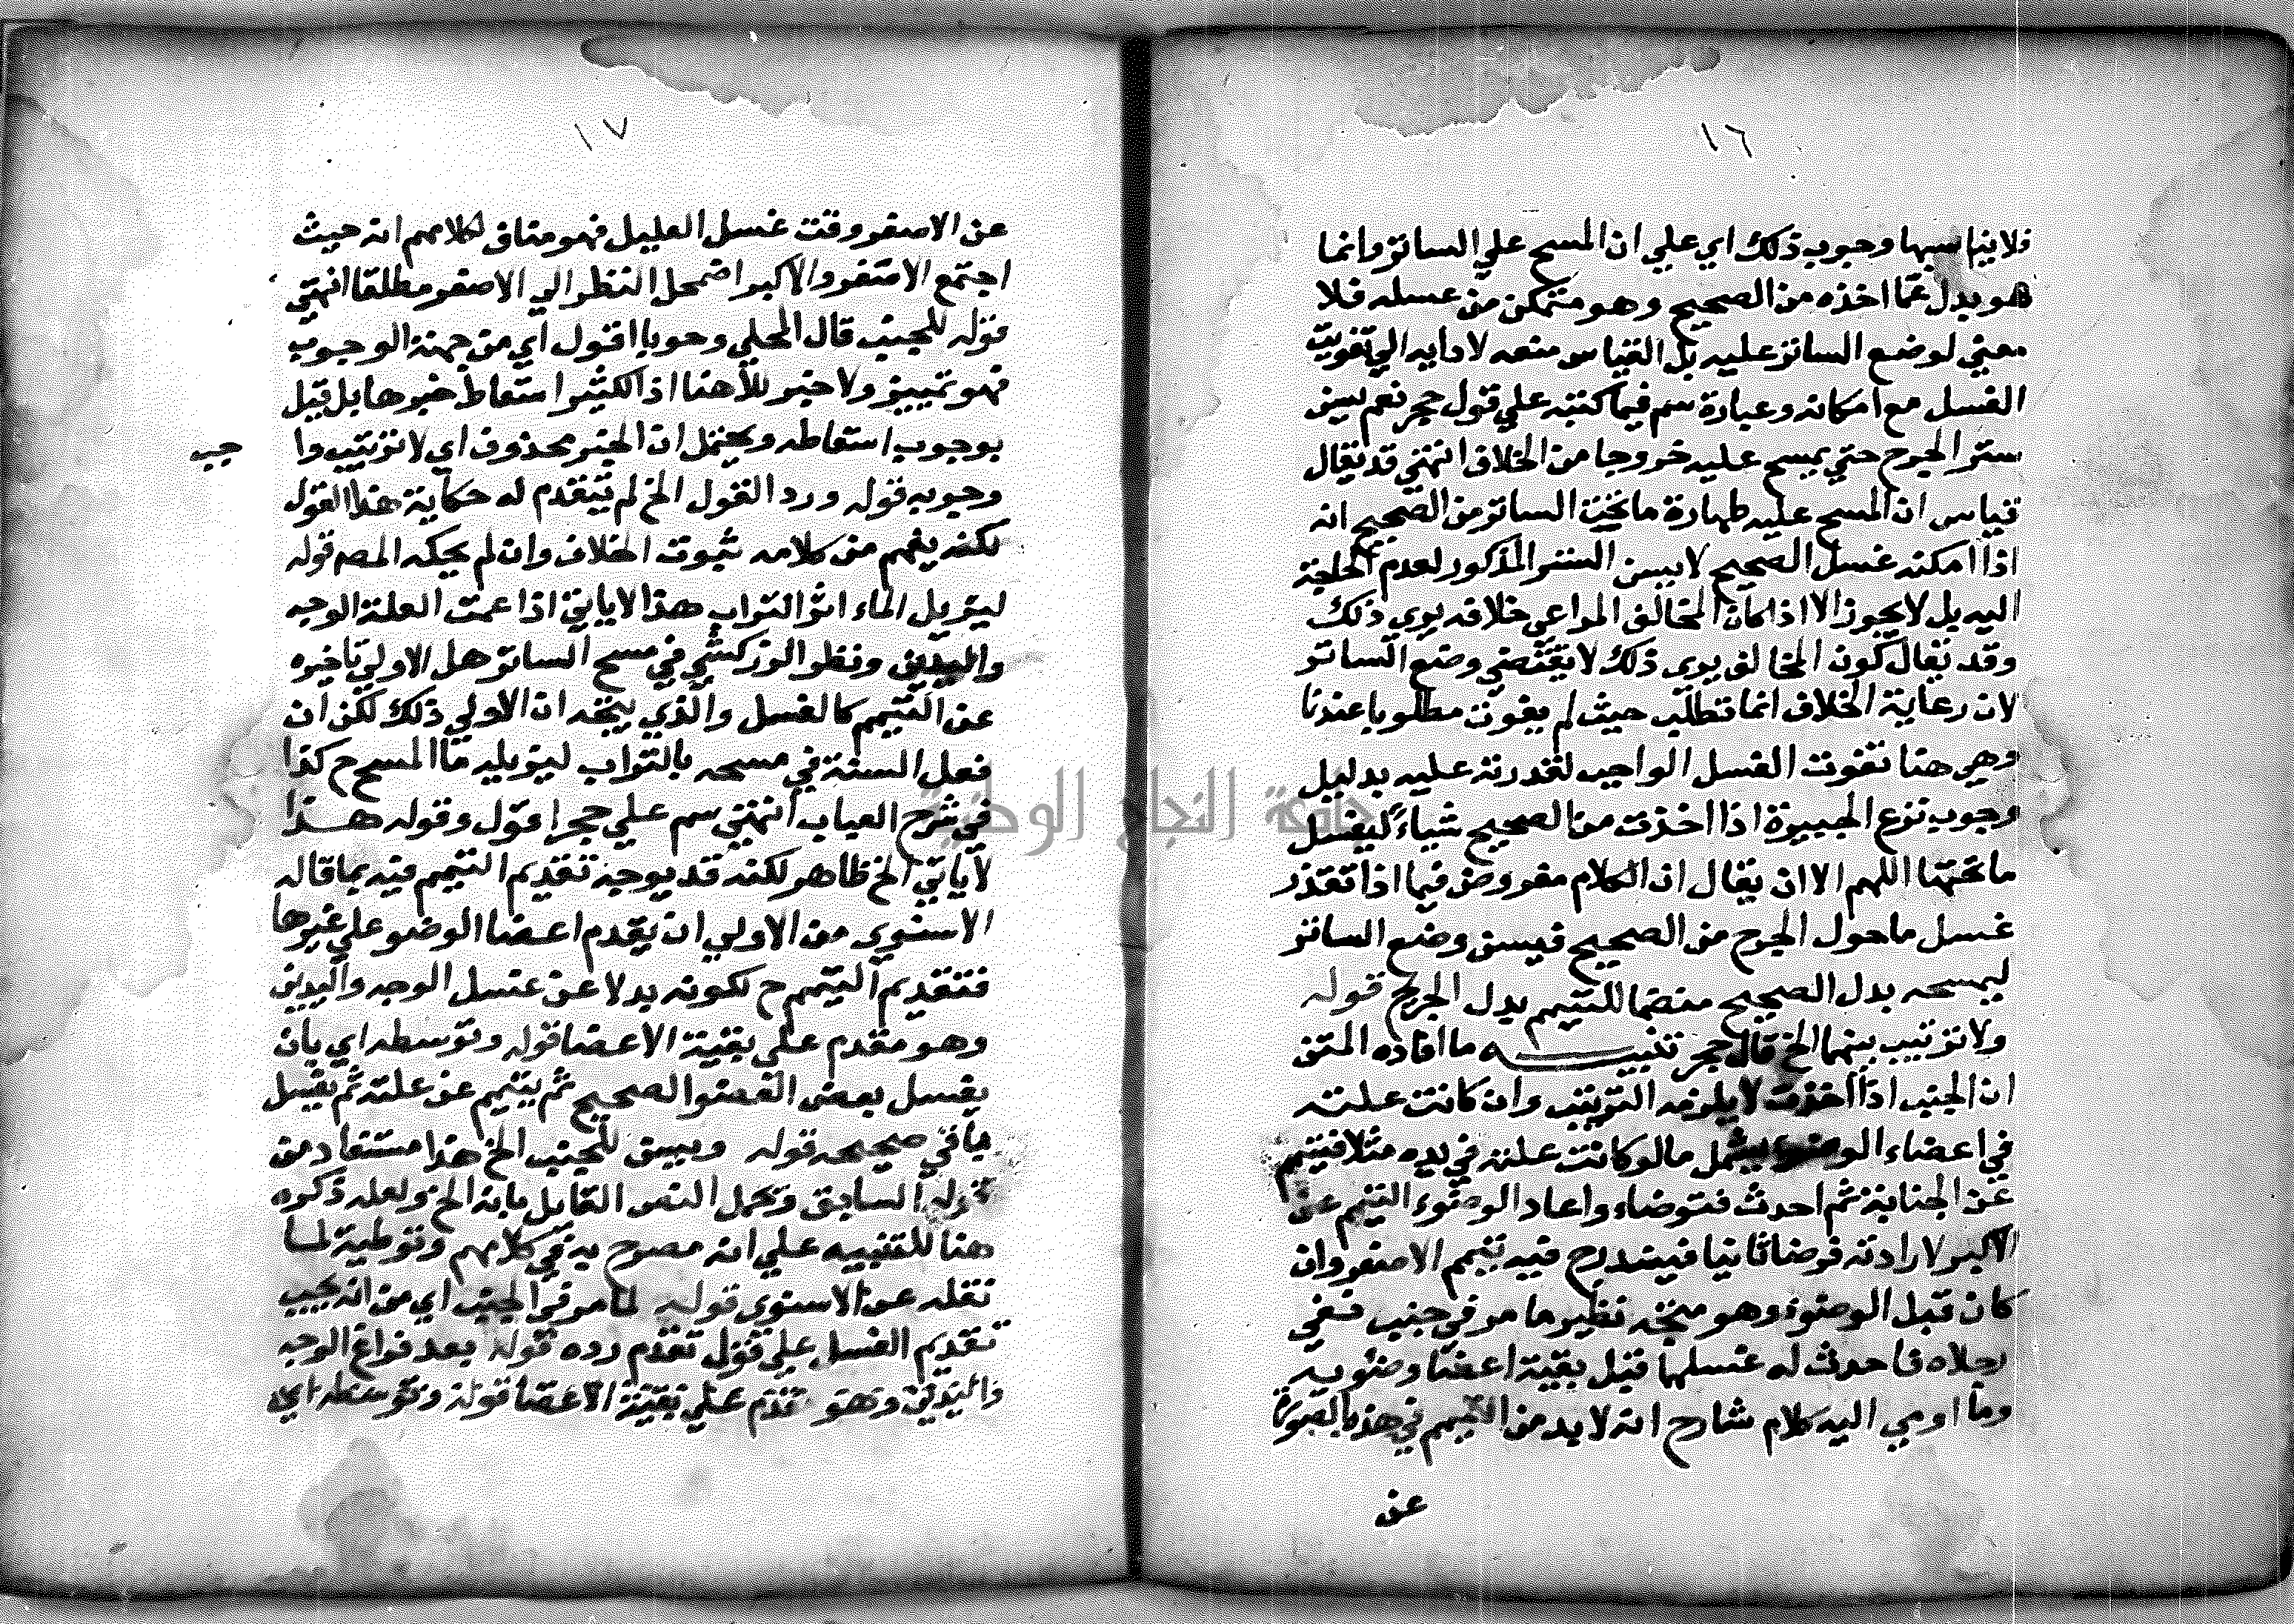 ١٦
فلا يناسبها وجوب ذلك اي علي ان المسح علي الساتر وانما
هو بدل عما اخذه من الصحيح وهو متمكن من غسله فلا
معني لوضع الساتر عليه بل القياس منعه لادايه الي تفويت
الغسل مع امكانه وعبارة سم فيما كتبه علي قول حجر نعم يسن
ستر الجرح حتي يمسح عليه خروجا من الخلاف انتهي قد يقال
قياس ان المسح عليه طهارة ما تحت الساتر من الصحيح انه
اذا امكنه غسل الصحيح لا يسن الستر المذكور لعدم الحاجة
اليه بل لا يجوز الا اذا كان المخالف المراعي خلافه يري ذلك
وقد يقال كون المخالف يري ذلك لا يقتضي وضع الساتر
لان رعاية الخلاف انما تطلب حيث لم يفوت مطلوبا عندنا
وهي هنا تفوت الغسل الواجب لقدرته عليه بدليل
وجوب نزع الجبيرة اذا اخذت من الصحيح شياء ليغسل
ما تحتها اللهم الا ان يقال ان الكلام مفروض فيما اذا تعذر
غسل ماحول الجرح من الصحيح فيسن وضع الساتر
ليمسحه بدل الصحيح منضما للتيمم بدل الجرح قوله
ولا ترتيب بينهما الخ قال حجر تنبيه ما افاده المتن
ان الجنب اذا احدث لا يلزمه الترتيب وان كانت علته
في اعضاء الوضوء يشمل مالو كانت علته في يده مثلا فتيمم
عن الجنابة ثم احدث فتوضاء واعاد الوضوء التيمم عن
الاكبر لارادته فرضا ثانيا فيندرج فيه تيمم الاصغر وان
كان قبل الوضوء وهو متجه نظير ما مر في جنب بقي
رجلاه فاحدث له غسلهما قبل بقية اعضا وضوبه
وما اومي اليه كلام شارح انه لا بد من التيمم في هذه الصورة
عن
١٧
عن الاصغر وقت غسل العليل فهو مناف لكلامهم انه حيث
اجتمع الاصغر والاكبر اضمحل النظر الي الاصغر مطلقا انتهي
قوله للجنب قال المحلي وجوبا اقول اي من جهة الوجوب
فهو تمييز ولا خبر للا هنا اذ الكثير اسقاط خبرها بل قيل
بوجوب اسقاطه ويحتمل ان الخبر محذوف اي لا ترتيب وا
جب
وجوبه قوله ورد القول الخ لم يتقدم له حكاية هذا القول
لكنه يفهم من كلامه ثبوت الخلاف وان لم يحكه المص قوله
ليزيل الماء اثر التراب هذا لا ياتي اذا عمت العلة الوجه
واليدين ونظر الزركشي في مسح الساتر هل الاولي تاخيره
عن التيمم كالغسل والذي يتجه ان الاولي ذلك لكن ان
فعل السنة في مسحه بالتراب ليزيله ما المسح ح كذا
في شرح العباب انتهي سم علي حجر اقول وقوله هذا
لا ياتي الخ ظاهر لكنه قد يوجه تقديم التيمم فيه بما قاله
الاسنوي من الاولي ان يقدم اعضا الوضو علي غيرها
فتقديم التيمم ح لكونه بدلا عن غسل الوجه واليدين
وهو مقدم علي بقية الاعضا قوله وتوسطه اي بان
يغسل بعض العضو الصحيح ثم يتيمم عن علته ثم يغسل
باقي صحيحه قوله ويسن للجنب الخ هذا مستفاد من
قوله السابق ويحمل النص القايل بانه الخ ولعله ذكره
هنا للتنبيه علي انه مصرح به في كلامهم وتوطية لما
نقله عن الاسنوي قوله لما مر في الجنب اي من انه يجب
تقديم الغسل علي قول تقدم رده قوله بعد فراغ الوجه
واليدين وهو مقدم علي بقية الاعضا قوله وتوسطه اي
جامعة النجاح الوطنية